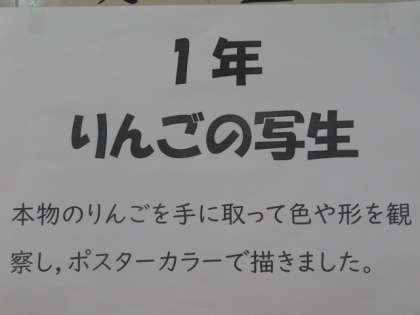 1年
りんごの写生
本物のりんごを手に取って色や形を観
察し,ポスターカラーで描きました。